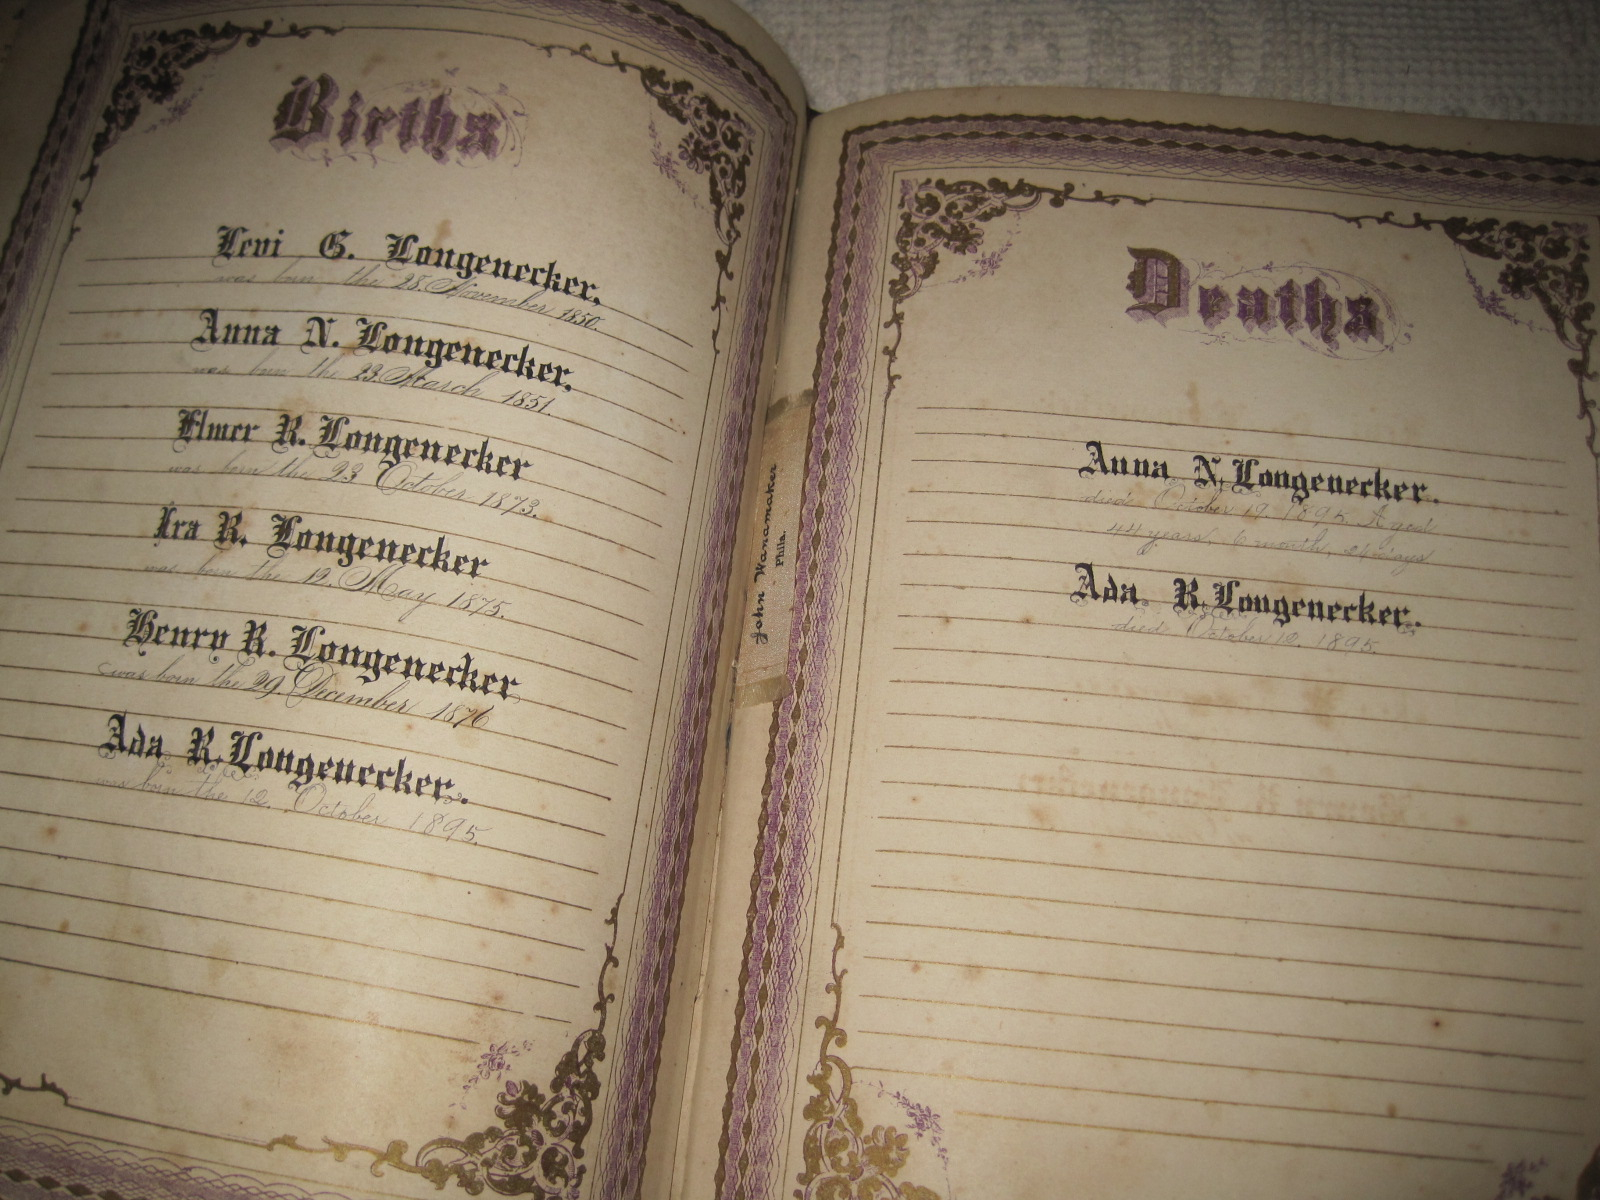 Births
Levi G. Longenecker.
was born the 28. November 1850.
Anna N. Longenecker.
was born the 23. March 1851.
Elmer R. Longenecker
was born the 23 October 1873.
Ira R. Longenecker
was born the 12. May 1875.
Henry R. Longenecker
was born the 29 December 1876
Ada R. Longenecker.
was born the 12. October 1895.
John Wanamaker
Phila.
Deaths
Anna N. Longenecker.
died October 19. 1895. Aged
44 years, 6 month, days
Ada R. Longenecker.
died October 12. 1895.